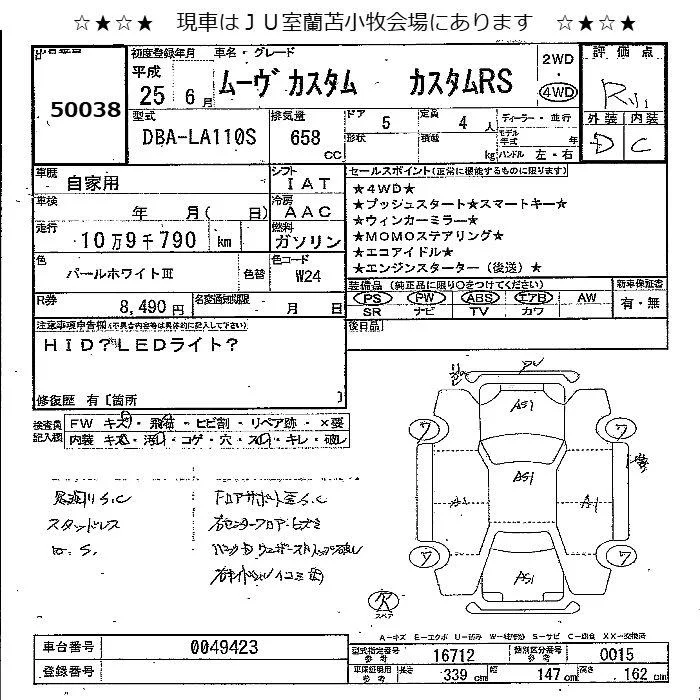 ☆★☆★ 現車はJU室蘭苫小牧会場にあります ☆★☆★
50038
初度登録年月 車名・グレード
平成
25 6月
ムーヴ カスタム カスタムRS
2WD
4WD
評価点
外装 内装
D C
型式 排気量 ドア 定員 ディーラー・並行
DBA-LA110S 658 cc 5 4 人
形状 積載 kg モデル年式 年
ハンドル 左・右
車歴 自家用
シフト IAT
車検 年 月( 日)
冷房 AAC
走行 10万9千790 km
燃料 ガソリン
色 パールホワイトⅢ 色替
色コード W24
R券 8,490円 名変通知期限 月 日
セールスポイント(正常に機能するものに限ります)
★4WD★
★プッシュスタート★スマートキー★
★ウィンカーミラー★
★MOMOステアリング★
★エコアイドル★
★エンジンスターター(後送)★
装備品(純正品に限り○をつけてください) 新車保証書
PS PW ABS エアB AW 有・無
SR ナビ TV カワ
後日品
注意事項申告欄(不具合内容等は具体的に記入して下さい)
HID?LEDライト?
修復歴 有〔箇所 〕
検査員記入欄
FW キズ・飛石・ヒビ割・リペア跡・×要
内装 キズ・汚れ・コゲ・穴・スレ・キレ・破レ
S.C
スタッドレス
S.C
AS1
AS1
AS1
A1 A1
ワ ワ
ワ ワ
スペア
A-キズ E-エクボ U-凹み W-補修跡 S-サビ C-腐食 XX-交換済
車台番号 0049423
登録番号
型式指定番号 参考 16712 類別区分番号 参考 0015
車検証明用 参考 長さ 339 cm 幅 147 cm 高さ 162 cm